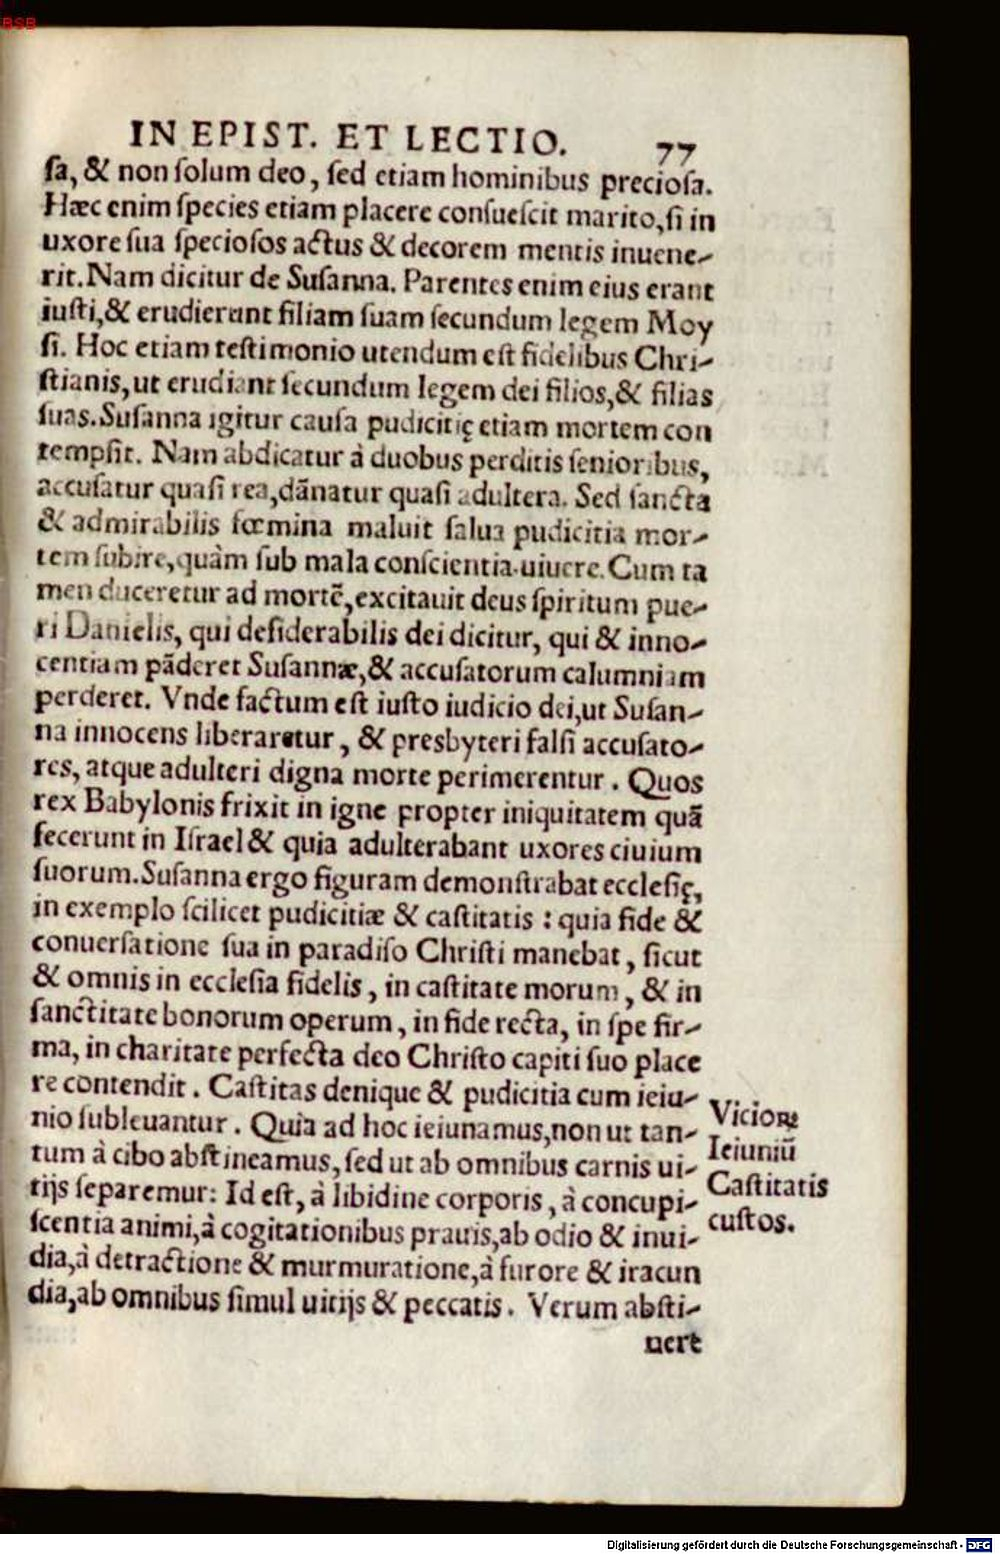 BSB
IN EPIST. ET LECTIO. 77
ſa, & non ſolum deo, ſed etiam hominibus precioſa.
Hæc enim ſpecies etiam placere conſueſcit marito, ſi in
uxore ſua ſpecioſos actus & decorem mentis inuene-
rit. Nam dicitur de Suſanna. Parentes enim eius erant
iuſti, & erudierunt filiam ſuam ſecundum legem Moy
ſi. Hoc etiam teſtimonio utendum eſt fidelibus Chri-
ſtianis, ut erudiant ſecundum legem dei filios, & filias
ſuas. Suſanna igitur cauſa pudicitię etiam mortem con
tempſit. Nam abdicatur à duobus perditis ſenioribus,
accuſatur quaſi rea, dānatur quaſi adultera. Sed ſancta
& admirabilis fœmina maluit ſalua pudicitia mor-
tem ſubire, quàm ſub mala conſcientia uiuere. Cum ta
men duceretur ad mortē, excitauit deus ſpiritum pue-
ri Danielis, qui deſiderabilis dei dicitur, qui & inno-
centiam pāderet Suſannæ, & accuſatorum calumniam
perderet. Vnde factum eſt iuſto iudicio dei, ut Suſan-
na innocens liberaretur, & presbyteri falſi accuſato-
res, atque adulteri digna morte perimerentur. Quos
rex Babylonis frixit in igne propter iniquitatem quā
fecerunt in Iſrael & quia adulterabant uxores ciuium
ſuorum. Suſanna ergo figuram demonſtrabat eccleſię,
in exemplo ſcilicet pudicitiæ & caſtitatis : quia fide &
conuerſatione ſua in paradiſo Chriſti manebat, ſicut
& omnis in eccleſia fidelis, in caſtitate morum, & in
ſanctitate bonorum operum, in fide recta, in ſpe fir-
ma, in charitate perfecta deo Chriſto capiti ſuo place
re contendit. Caſtitas denique & pudicitia cum ieiu-
nio ſubleuantur. Quia ad hoc ieiunamus, non ut tan-
tum à cibo abſtineamus, ſed ut ab omnibus carnis ui-
tijs ſeparemur: Id eſt, à libidine corporis, à concupi-
ſcentia animi, à cogitationibus prauis, ab odio & inui-
dia, à detractione & murmuratione, à furore & iracun
dia, ab omnibus ſimul uitijs & peccatis. Verum abſti-
nert
Vicioꝝ
Ieiuniū
Caſtitatis
cuſtos.
Digitalisierung gefördert durch die Deutsche Forschungsgemeinschaft - DFG